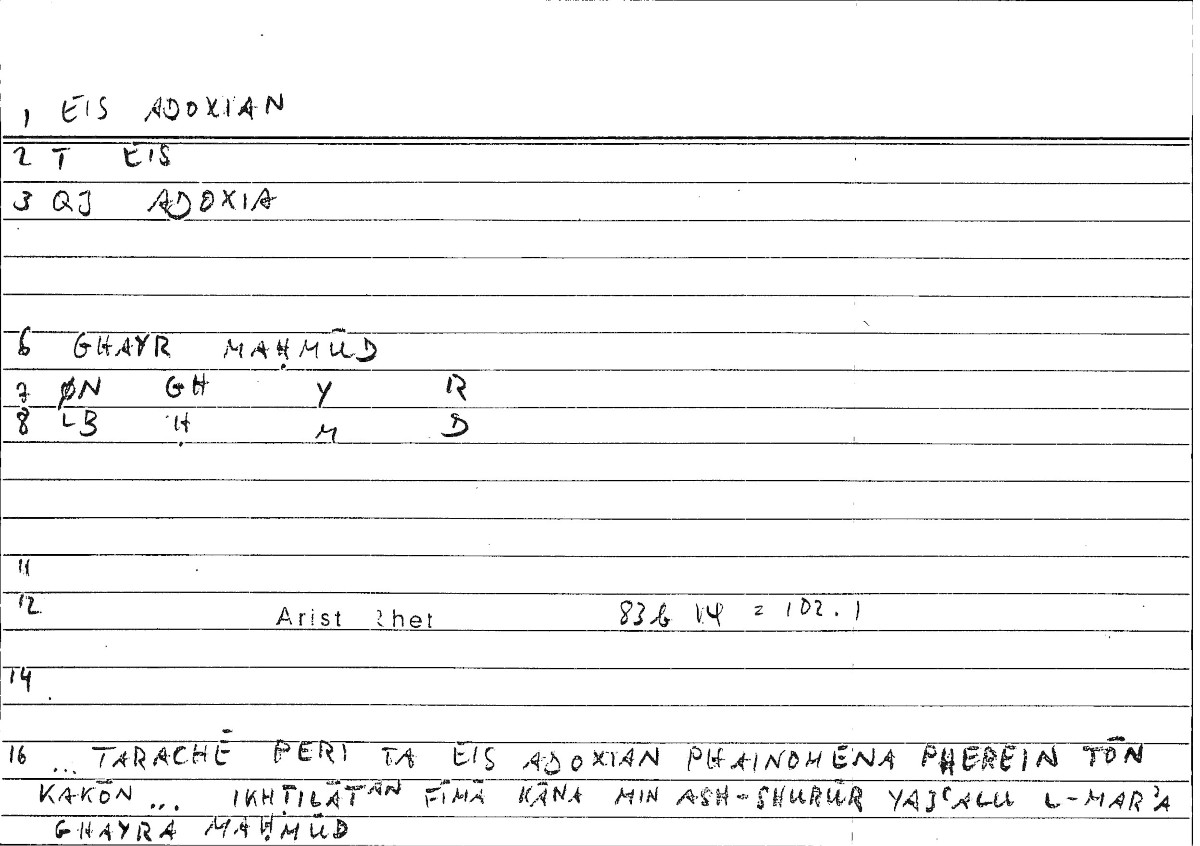 1 EIS ADOXIAN
2 T EIS
3 QJ ADOXIA
6 GHAYR MAḤMŪD
7 ØN GH Y R
8 LB Ḥ M D
11
12 Arist Rhet 83b 14 = 102.1
14
16 ... TARACHĒ PERI TA EIS ADOXIAN PHAINOMENA PHEREIN TŌN
KAKŌN ... IKHTILĀṬAN FĪMĀ KĀNA MIN ASH-SHURŪR YAJʿALU L-MARʾA
GHAYRA MAḤMŪD